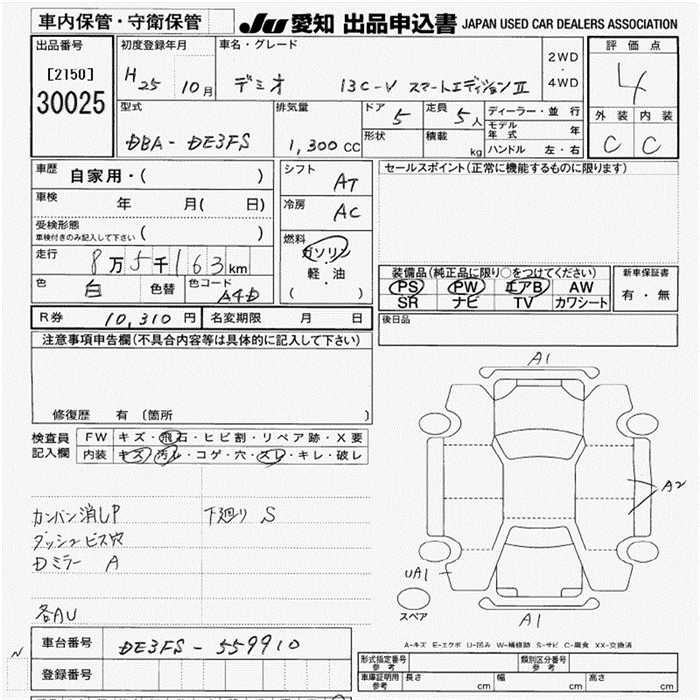 車内保管・守衛保管
JU 愛知 出品申込書 JAPAN USED CAR DEALERS ASSOCIATION
出品番号
[2150]
30025
初度登録年月
H25 10月
車名・グレード
デミオ 13C-V スマートエディションⅡ
2WD
・
4WD
評価点
4
外装 内装
C C
型式
DBA-DE3FS
排気量
1,300cc
ドア 5
形状
定員 5人
積載 kg
ディーラー・並行
モデル年式 年
ハンドル 左・右
車歴 自家用・( )
車検 年 月( 日)
受検形態
車検付きのみ記入して下さい ( )
走行 8万5千163km
色 白 色替 色コード A4D
シフト AT
冷房 AC
燃料
ガソリン
軽・油
( )
セールスポイント(正常に機能するものに限ります)
装備品(純正品に限り○をつけてください)
PS PW エアB AW
SR ナビ TV カワシート
新車保証書
有・無
R券 10,310円 名変期限 月 日
後日品
注意事項申告欄(不具合内容等は具体的に記入して下さい)
修復歴 有〔箇所 〕
検査員記入欄
FW キズ・飛石・ヒビ割・リペア跡・X要
内装 キズ・汚レ・コゲ・穴・スレ・キレ・破レ
カンバン消しP 下廻り S
ダッシュビス穴
Dミラー A
各AU
A1
A2
UA1
スペア
A1
A-キズ E-エクボ U-凹み W-補修跡 S-サビ C-腐食 XX-交換済
車台番号 DE3FS-559910
N
登録番号
形式指定番号
参考
類別区分番号
参考
車庫証明用
参考
長さ cm 幅 cm 高さ cm